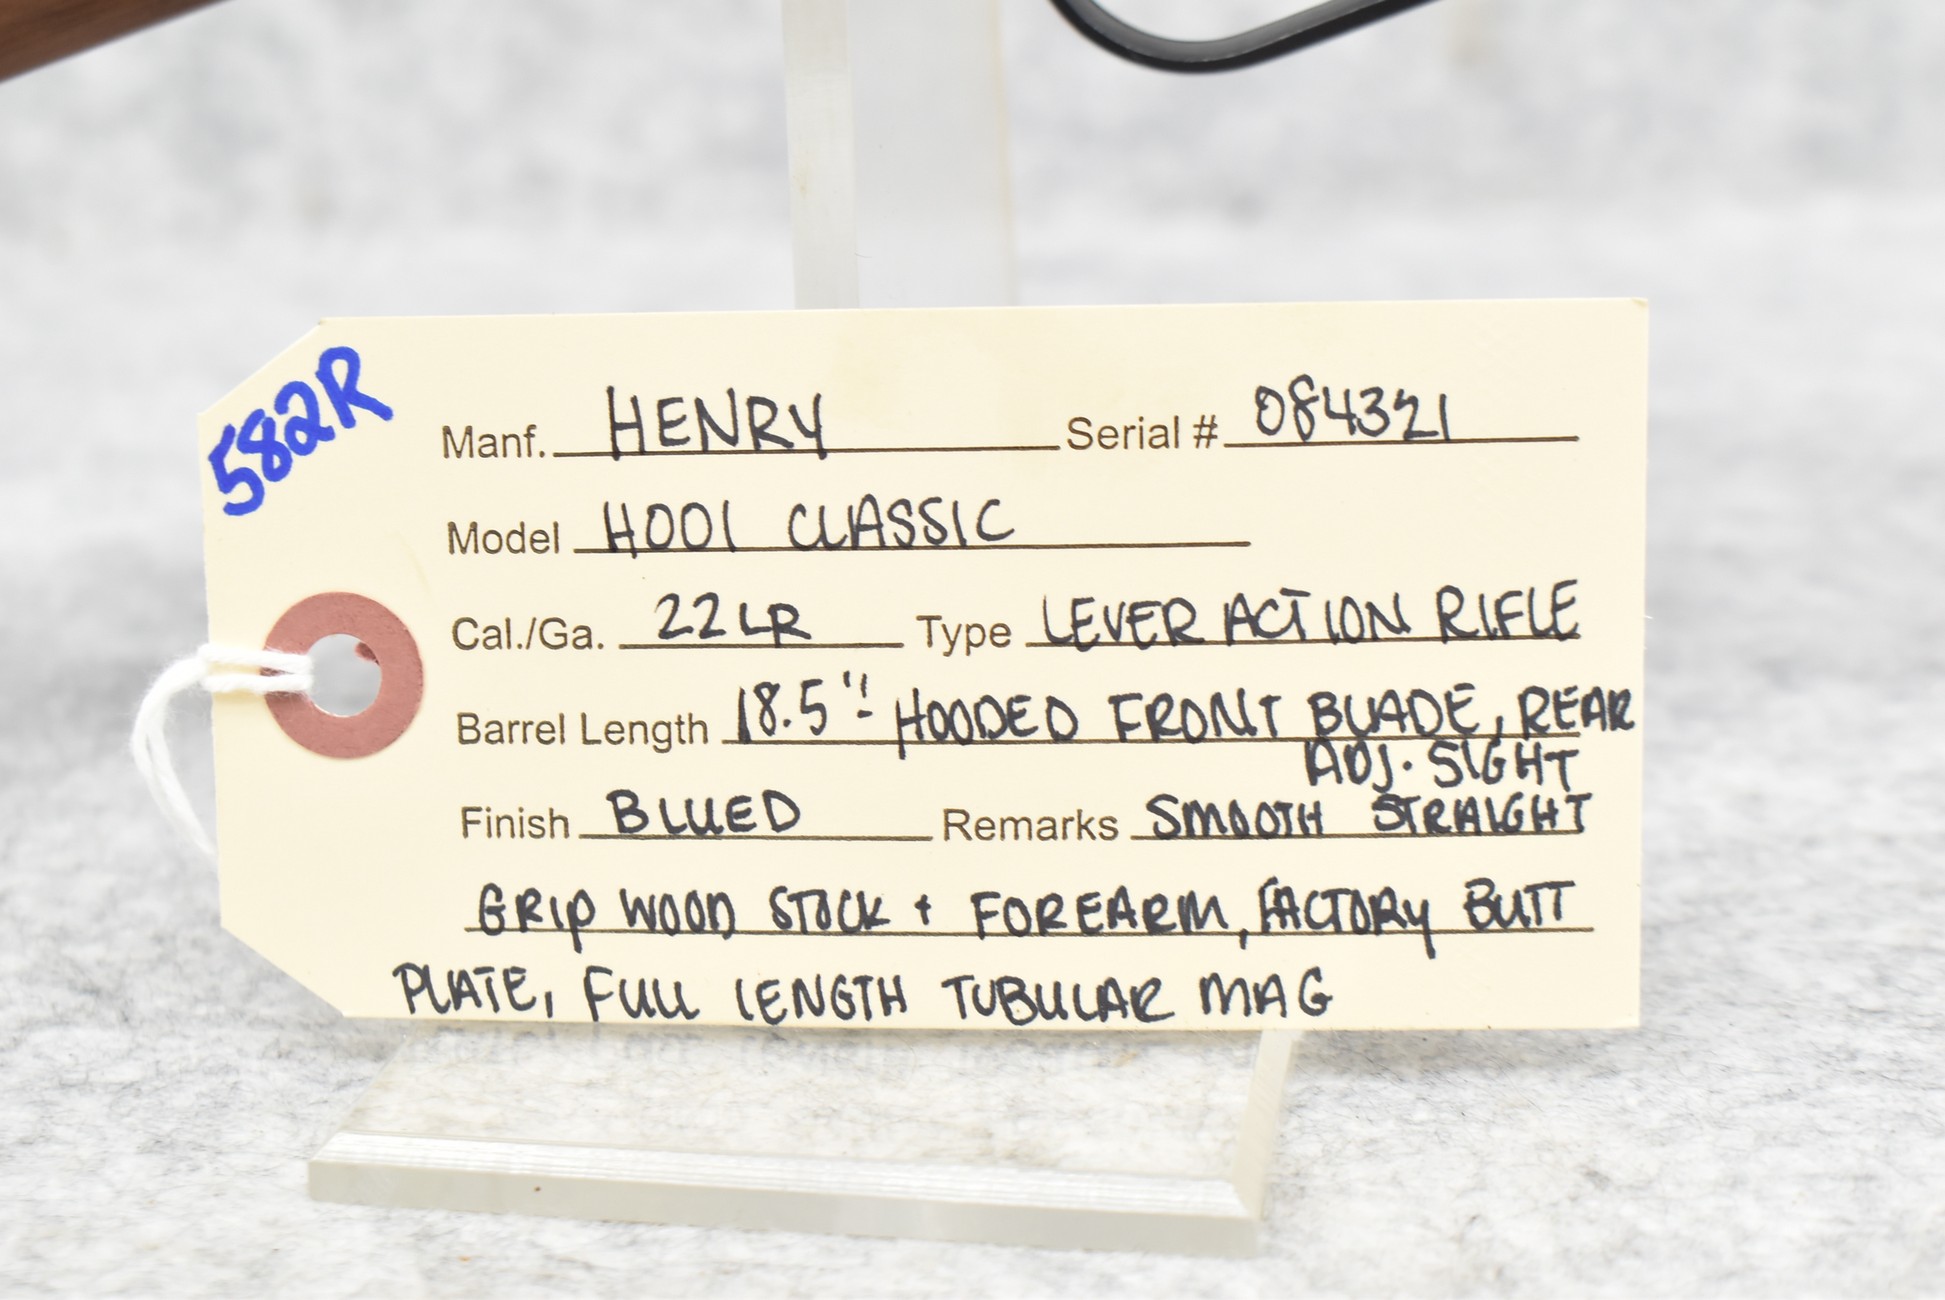 582R
Manf. HENRY Serial # 084321
Model H001 CLASSIC
Cal./Ga. 22 LR Type LEVER ACTION RIFLE
Barrel Length 18.5"- HOODED FRONT BLADE, REAR
ADJ. SIGHT
Finish BLUED Remarks SMOOTH STRAIGHT
GRIP WOOD STOCK + FOREARM, FACTORY BUTT
PLATE, FULL LENGTH TUBULAR MAG